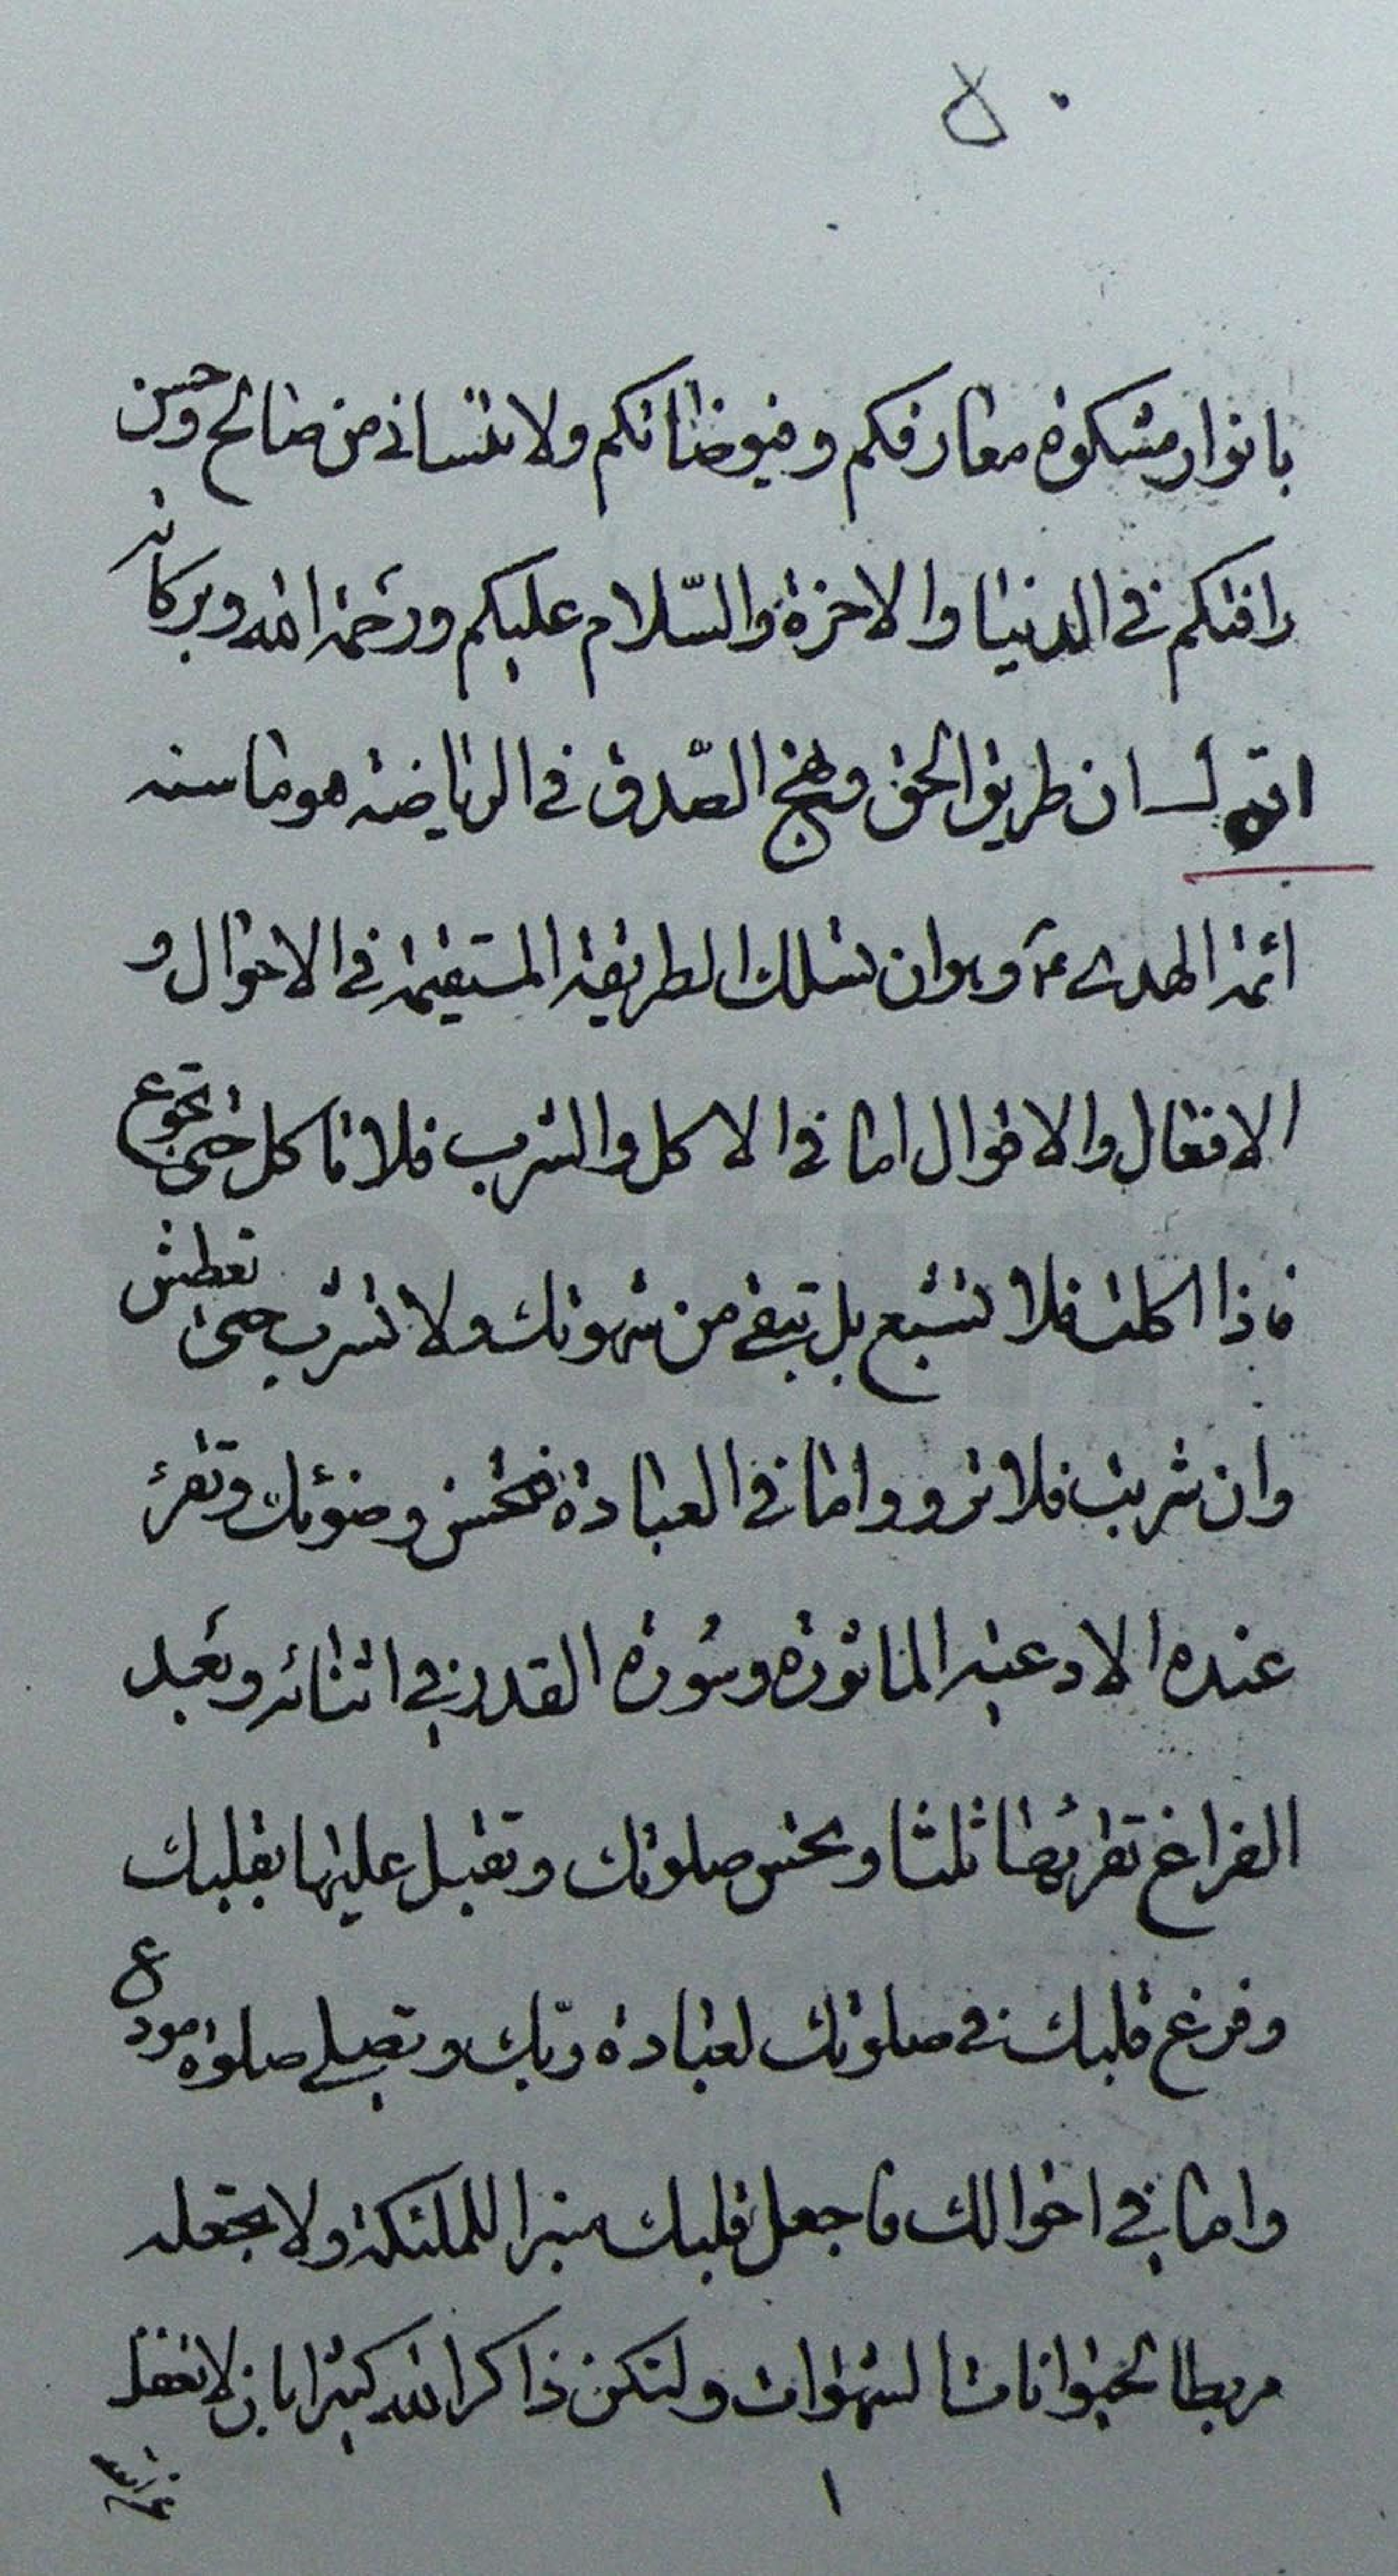 بانوار مشكوة معارفكم وفيوضاتكم ولا تنساني من صالح وحسن
رافتكم في الدنيا والاخرة والسّلام عليكم ورحمة الله وبركاته
اقول ان طريق الحق ونهج الصّدق في الرياضة هو ما سنه
ائمة الهدى ع وهو ان تسلك الطريقة المستقيمة في الاحوال و
الافعال والاقوال اما في الاكل والشرب فلا تاكل حتى تجوع
فاذا اكلت فلا تشبع بل تبقى من شهوتك ولا تشرب حتى تعطش
وان شربت فلا ترو واما في العبادة فتحسن وضوئك وتقرء
عنده الادعية الماثورة وسورة القدر في اثنائه وبعد
الفراغ تقرئها ثلثا وتحسن صلوتك وتقبل عليها بقلبك
وفرغ قلبك في صلوتك لعبادة ربّك وتصلي صلوة مودع
واما في احوالك فاجعل قلبك منبرا للملئكة ولا تجعله
مربطا لحيوانات الشهوات ولتكن ذاكرا لله كثيرا بان لا تغفل
١